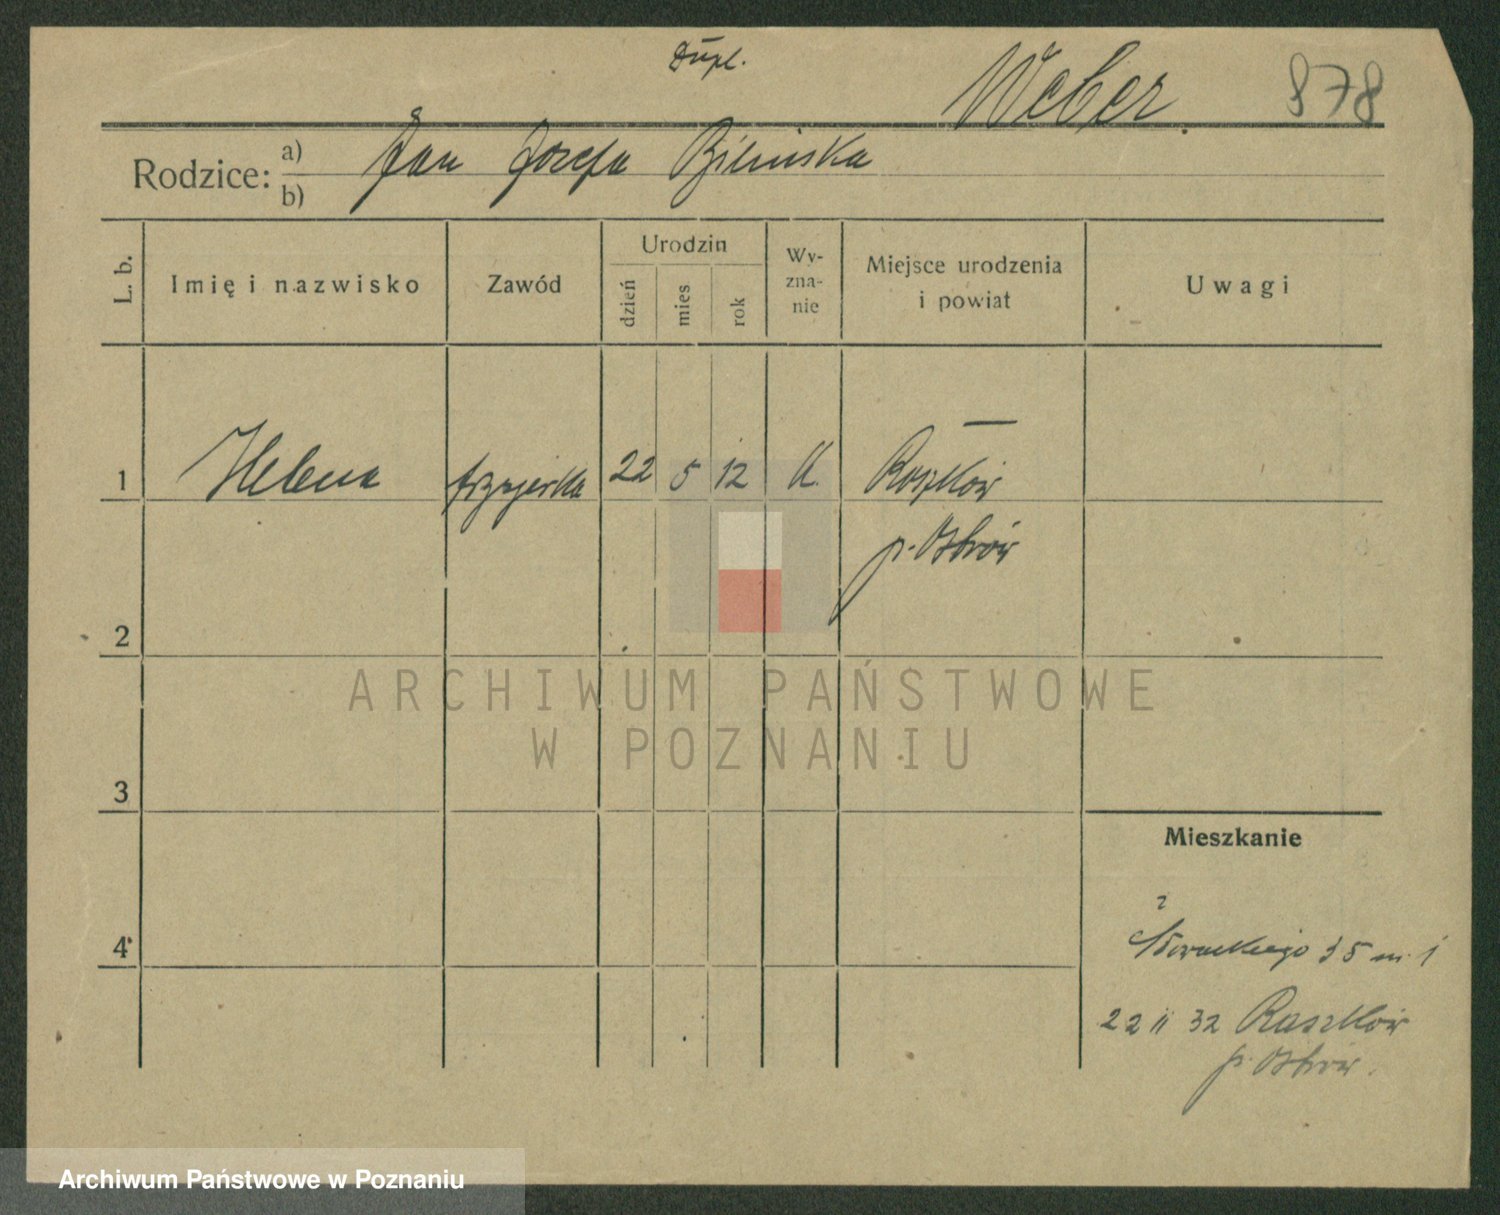 Dupl.
Weber. 878
Rodzice: a) b) Jan Józefa Bilinska
L. b.
Imię i nazwisko
Zawód
Urodzin
dzień
mies
rok
Wy-
zna-
nie
Miejsce urodzenia
i powiat
Uwagi
1 Helena fryzjerka 22 5 12 K. Raszków
p. Ostrów
2
3
4
Mieszkanie
Słowackiego 35 m. 1
22 II 32 Raszków
p. Ostrów.
ARCHIWUM PAŃSTWOWE
W POZNANIU
Archiwum Państwowe w Poznaniu